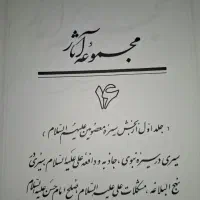 مجموعه آثار
۱۴
(جلد اول از بخش سیره معصومین علیهم السلام)
سیری در سیره نبوی، جاذبه و دافعه علی علیه السلام، سیری در
نهج البلاغه، مشکلات علی علیه السلام، صلح امام حسن علیه السلام